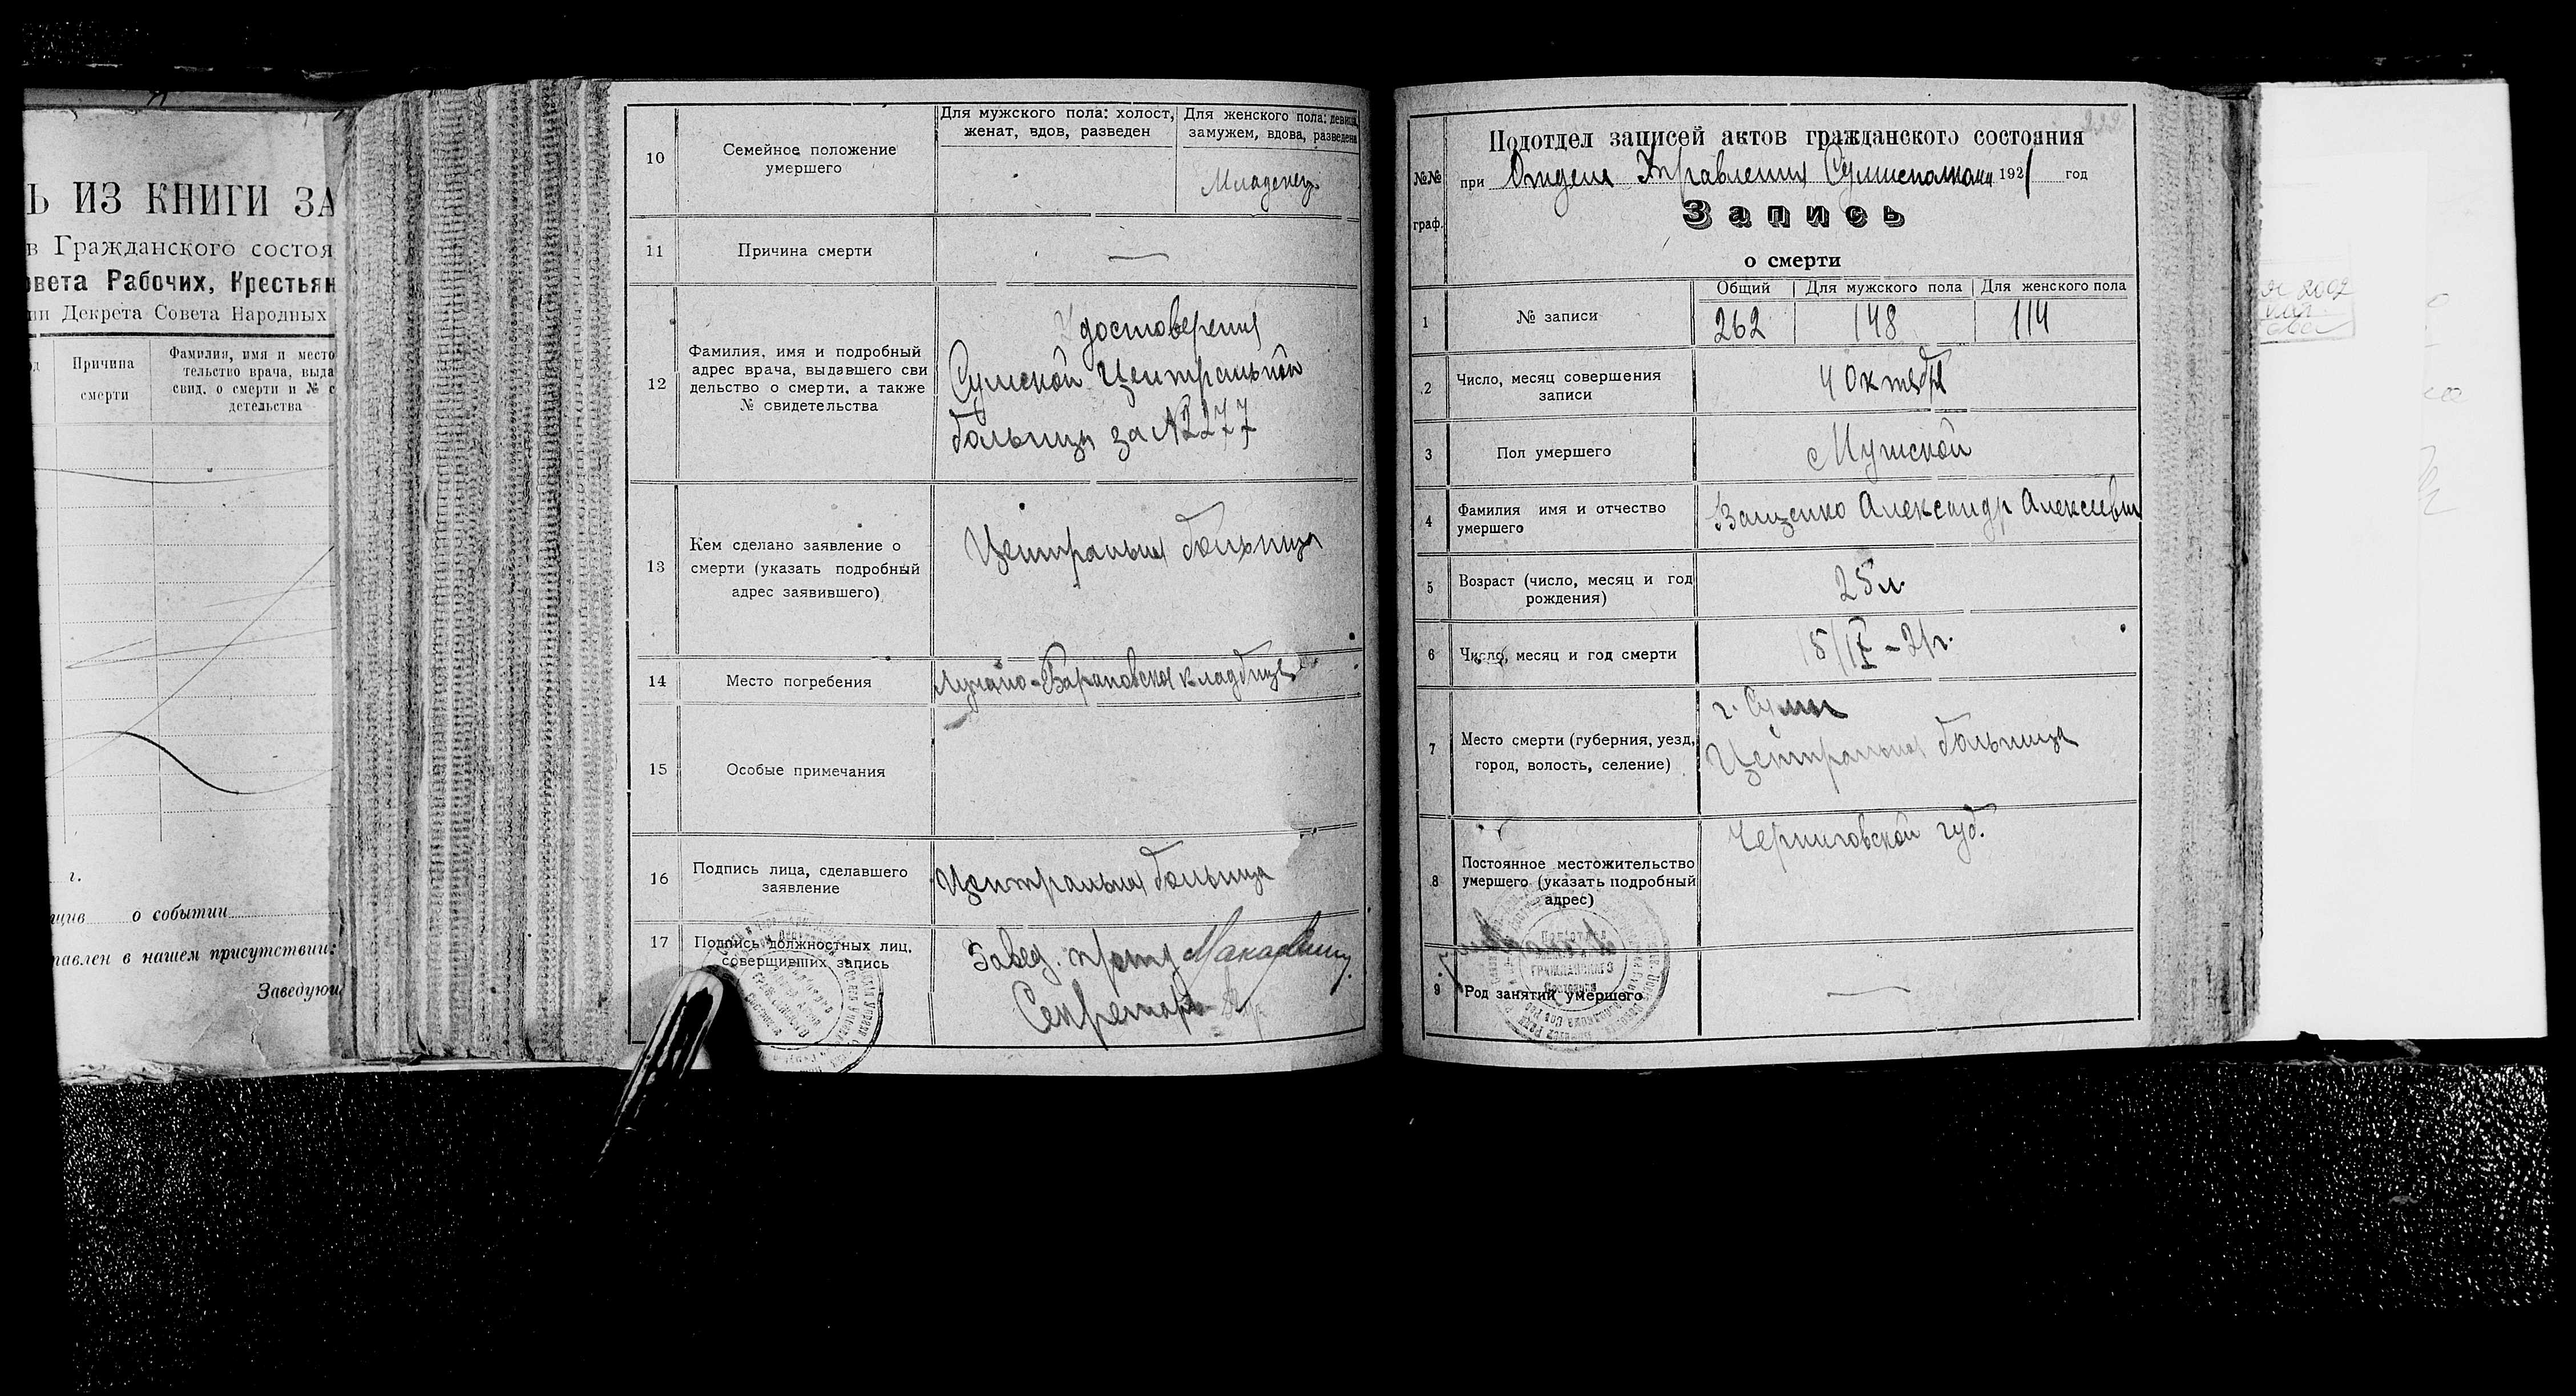 Ь ИЗ КНИГИ ЗА
в Гражданского состоя
овета Рабочих, Крестьян
ии Декрета Совета Народных
Причина
смерти
Фамилия, имя и место
тельство врача, выда
свид. о смерти и № с
детельства
г.
щив о событии
тавлен в нашем присутствии:
Заведую
10
Семейное положение
умершего
Для мужского пола: холост,
женат, вдов, разведен
Для женского пола: девица,
замужем, вдова, разведена
Младенец
11
Причина смерти
—
12
Фамилия, имя и подробный
адрес врача, выдавшего сви
дельство о смерти, а также
№ свидетельства
Удостоверения
Сумской Центральной
больницы за №2277
13
Кем сделано заявление о
смерти (указать подробный
адрес заявившего)
Центральная больница
14
Место погребения
кладбище
15
Особые примечания
16
Подпись лица, сделавшего
заявление
Центральная больница
17
Подпись должностных лиц,
совершивших запись
Завед.
Секретарь
№№
граф.
Подотдел записей актов гражданского состояния
при Отделе Управления Сумисполкома 1921 год
Запись
о смерти
1
№ записи
Общий
Для мужского пола
Для женского пола
262
148
114
2
Число, месяц совершения
записи
4 Октября
3
Пол умершего
Мужской
4
Фамилия имя и отчество
умершего
Ващенко Александр Алексеевич
5
Возраст (число, месяц и год
рождения)
25 л.
6
Число, месяц и год смерти
21г.
7
Место смерти (губерния, уезд,
город, волость, селение)
г. Сумы
Центральная больница
8
Постоянное местожительство
умершего (указать подробный
адрес)
Черниговской губ.
9
Род занятий умершего
—
ГРАЖДАНСКАГО
Состояния